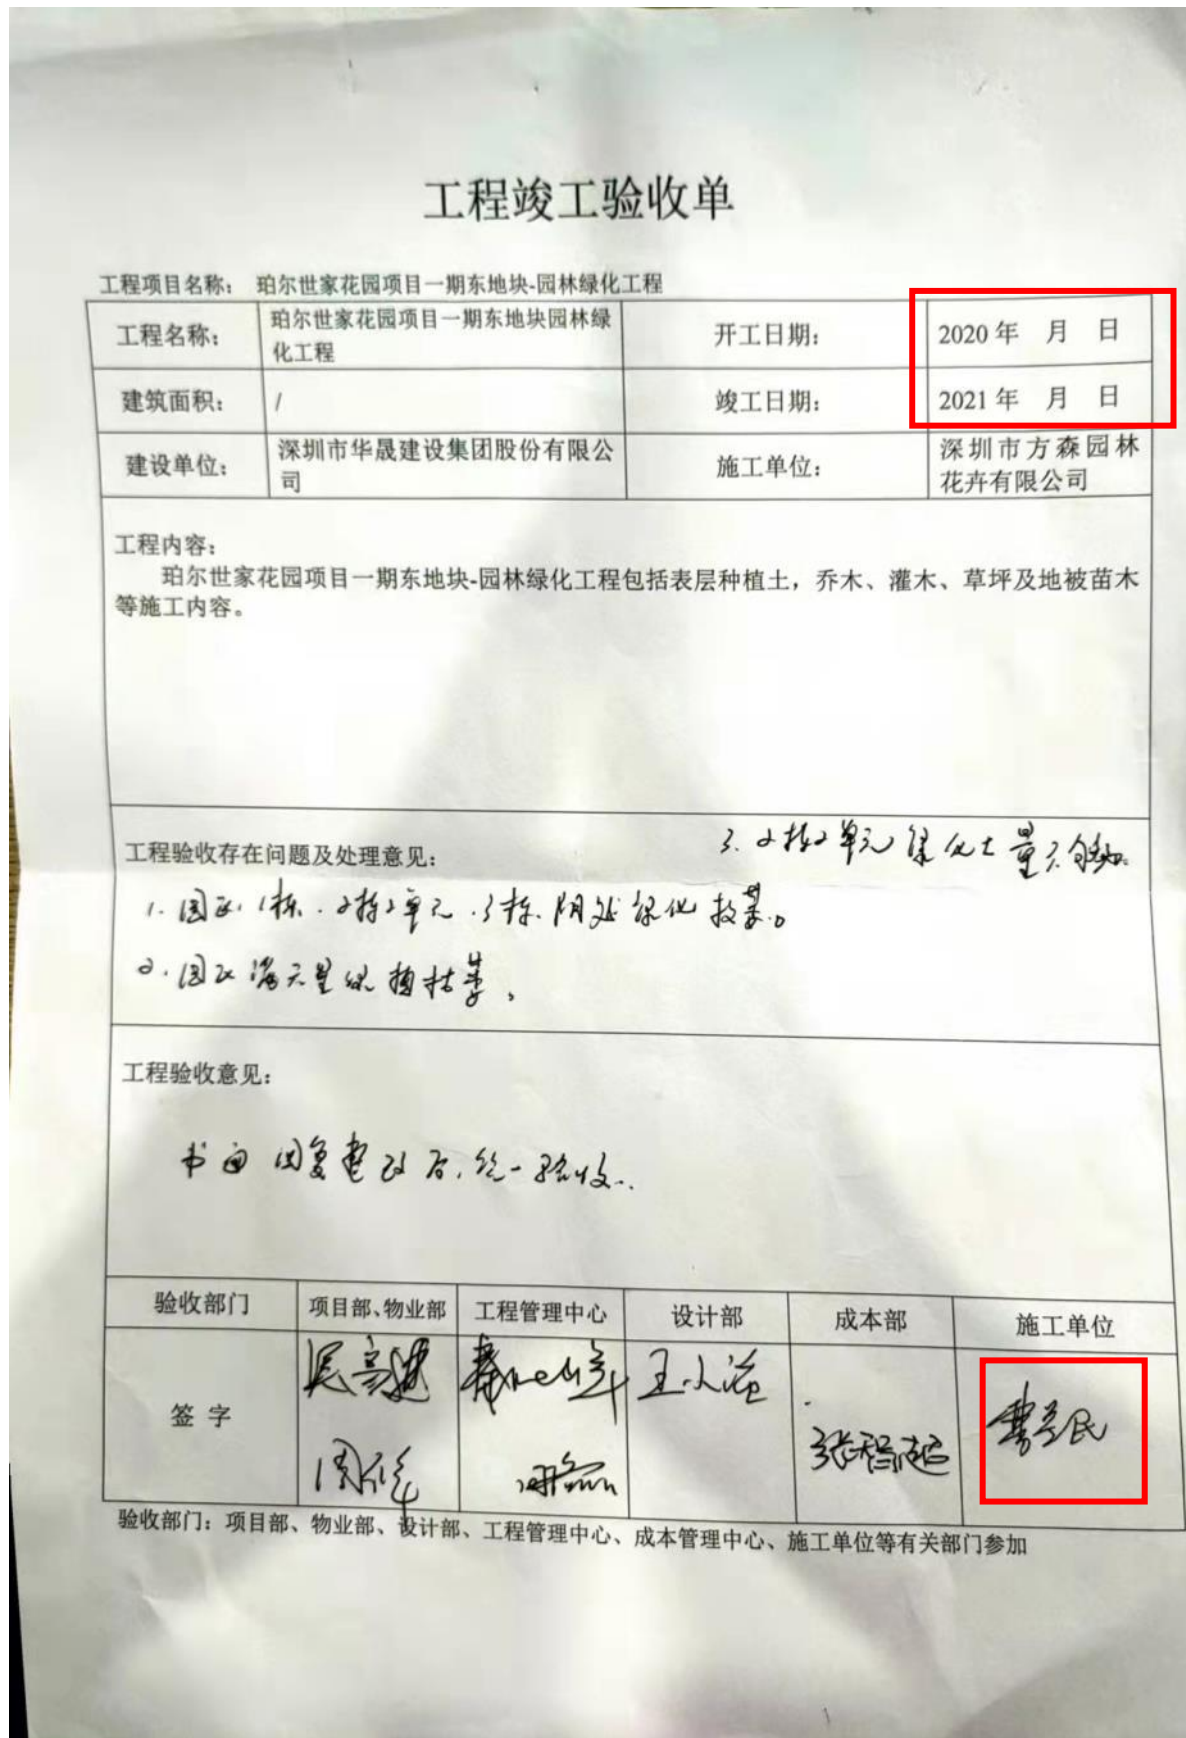 工程竣工验收单
工程项目名称: 珀尔世家花园项目一期东地块-园林绿化工程
工程名称: 珀尔世家花园项目一期东地块园林绿
化工程
开工日期: 2020 年 月 日
建筑面积: / 竣工日期: 2021 年 月 日
建设单位: 深圳市华晟建设集团股份有限公
司
施工单位: 深圳市方森园林
花卉有限公司
工程内容:
珀尔世家花园项目一期东地块-园林绿化工程包括表层种植土,乔木、灌木、草坪及地被苗木
等施工内容。
工程验收存在问题及处理意见:
3. 2栋2单元绿化土量不
1. 园区1栋、2栋2单元、3栋、阴处绿化
2. 园区满天星绿植枯萎。
工程验收意见:
书面回复整改后,统一验收.
验收部门 项目部、物业部 工程管理中心 设计部 成本部 施工单位
签 字
张智超
验收部门:项目部、物业部、设计部、工程管理中心、成本管理中心、施工单位等有关部门参加